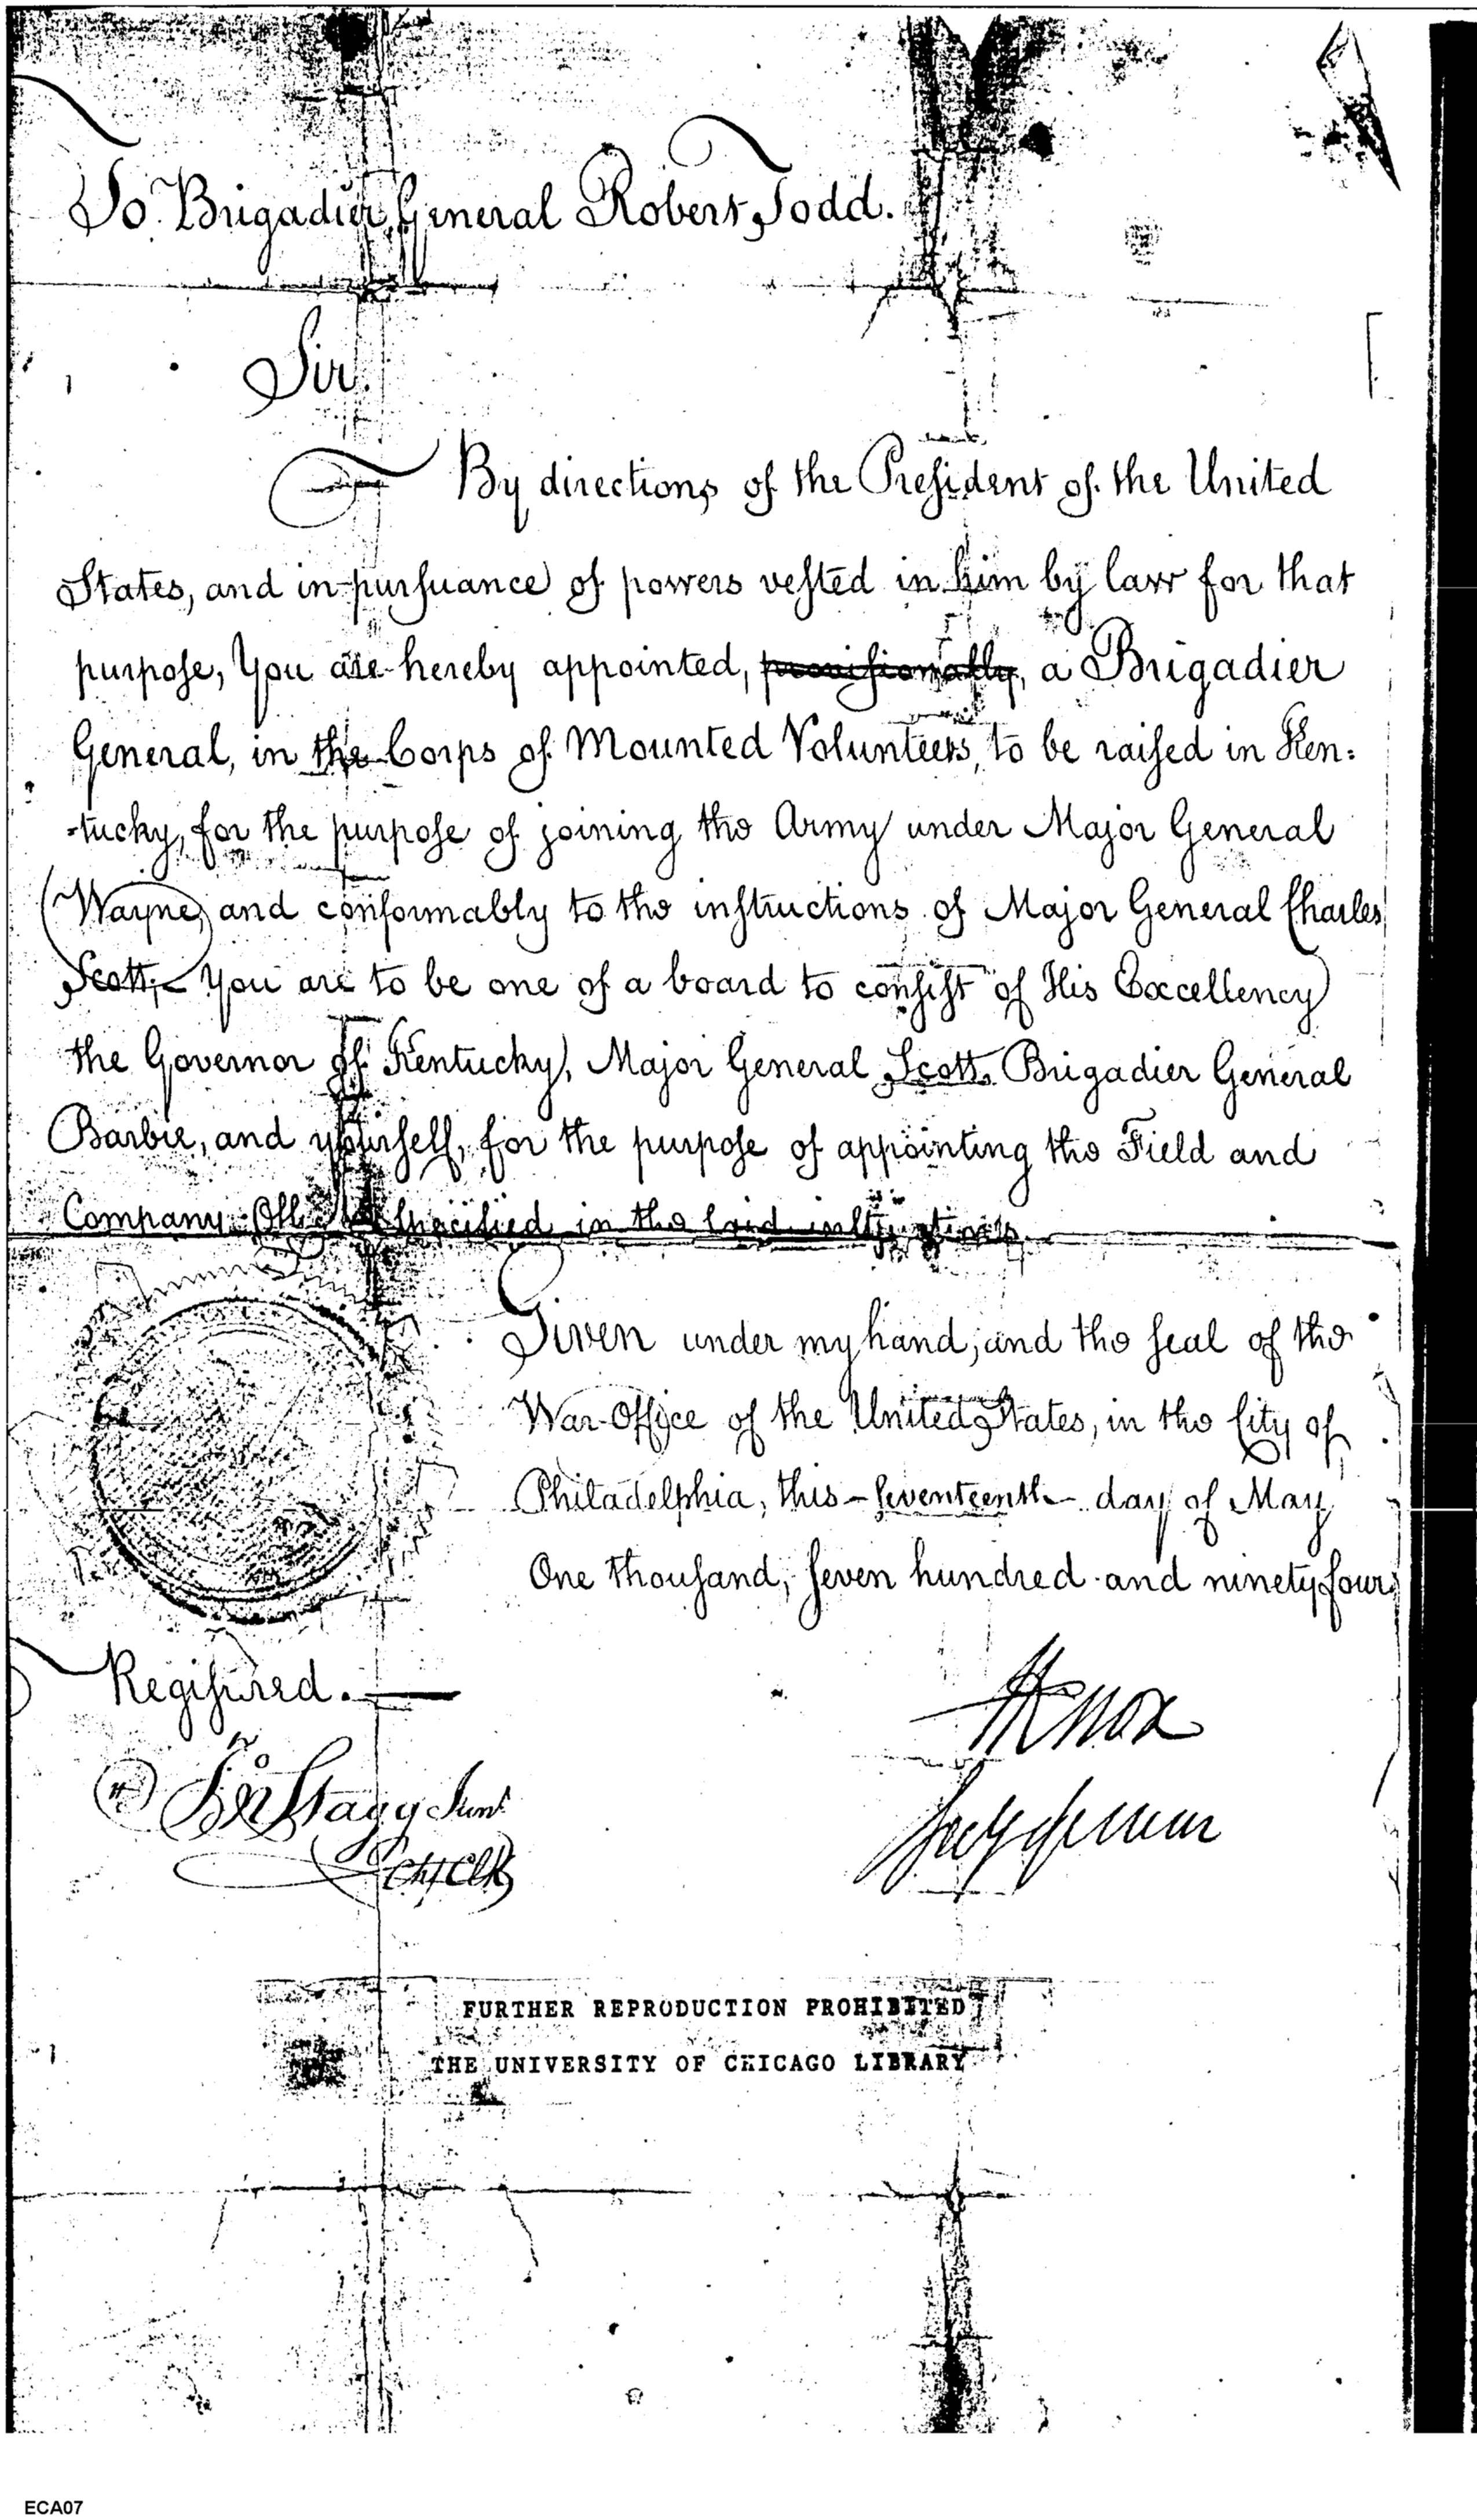 To Brigadier General Robert Todd.
Sir.
By directions of the President of the United
States, and in pursuance of powers vested in him by law for that
purpose, You are hereby appointed, provisionally, a Brigadier
General, in the Corps of Mounted Volunteers, to be raised in Ken:
-tucky, for the purpose of joining the Army under Major General
Wayne, and conformably to the instructions of Major General Charles
Scott;— You are to be one of a board to consist of His Excellency
the Governor of Kentucky, Major General Scott, Brigadier General
Barbie, and yourself, for the purpose of appointing the Field and
Company Officers specified in the said instructions.
Given under my hand, and the seal of the
War-Office of the United States, in the City of
Philadelphia, this — seventeenth — day of May
One thousand, seven hundred and ninety four,
Registered.—
HKnox
Secy of War
Jno Stagg Junr
Chf Clk
FURTHER REPRODUCTION PROHIBITED
THE UNIVERSITY OF CHICAGO LIBRARY
ECA07